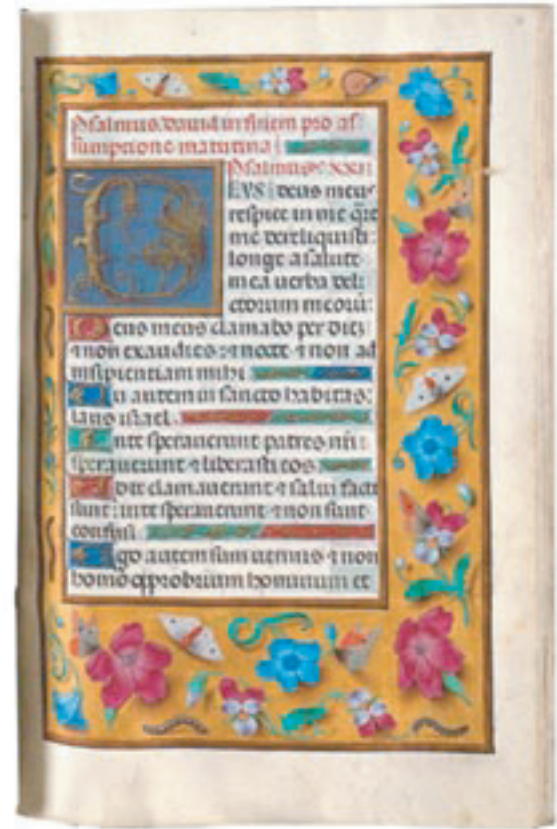 Psalmus david in finem pro as
sumptione matutina
Psalmus XXI
DEUS deus meus
respice in me q̄re
me dereliquisti:
longe a salute
mea uerba deli
ctorum meorū:
Deus meus clamabo per diē
⁊ non exaudies: ⁊ nocte ⁊ non ad
insipientiam mihi
Tu autem in sancto habitas:
laus israel.
In te sperauerunt patres nr̄i:
sperauerunt ⁊ liberasti eos
Ad te clamauerunt ⁊ salui facti
sunt: in te sperauerunt ⁊ non sunt
confusi
Ego autem sum uermis ⁊ non
homo opprobrium hominum et